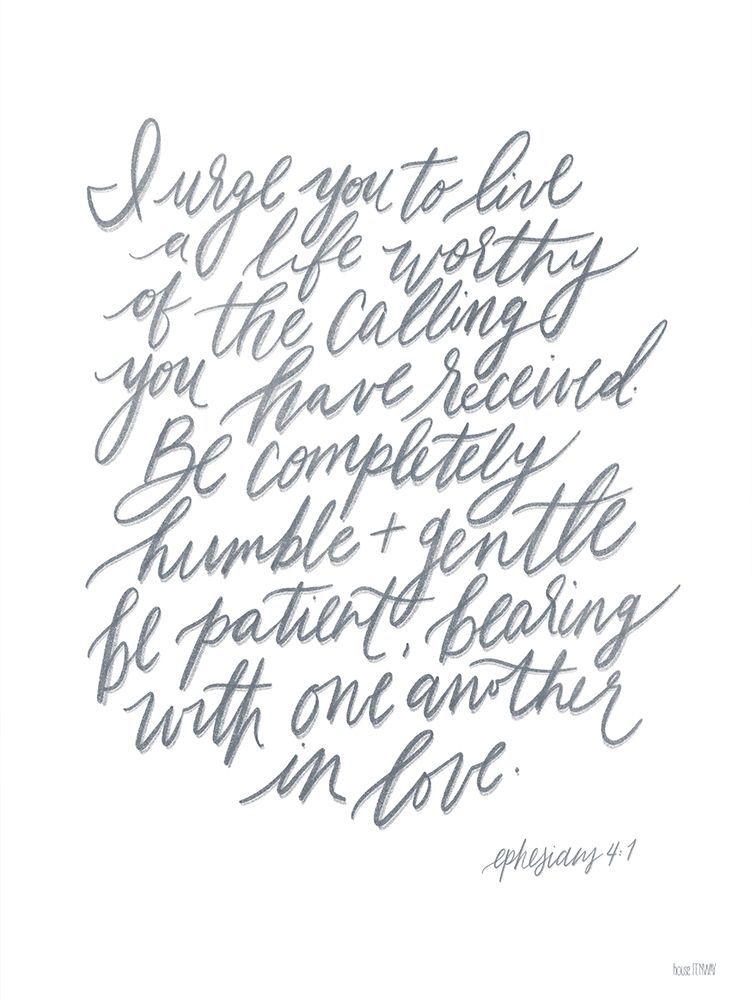 I urge you to live
a life worthy
of the calling
you have received.
Be completely
humble + gentle
be patient, bearing
with one another
in love.
ephesians 4:1
house FENWAY